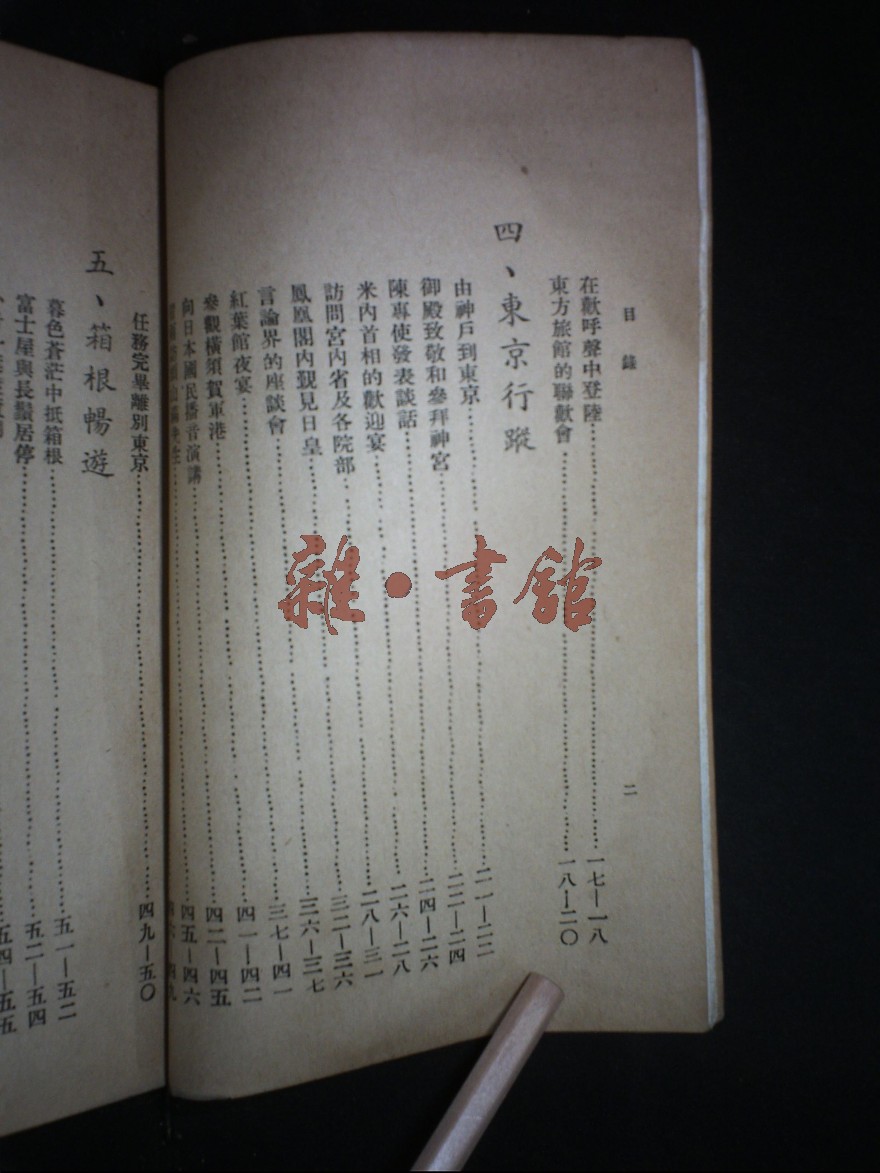 目錄
二
在歡呼聲中登陸……一七—一八
東方旅館的聯歡會……一八—二〇
四、東京行蹤
由神戶到東京……二一—二二
御殿致敬和參拜神宮……二二—二四
陳專使發表談話……二四—二六
米內首相的歡迎宴……二六—二八
訪問宮內省及各院部……二八—三一
鳳凰閣內覲見日皇……三二—三六
言論界的座談會……三六—三七
紅葉館夜宴……三七—四一
參觀橫須賀軍港……四一—四二
向日本國民播音演講……四二—四五
四五—四六
任務完畢離別東京……四九—五〇
五、箱根暢遊
暮色蒼茫中抵箱根……五一—五二
富士屋與長鬚居停……五二—五四
五四—五五
雜·書館